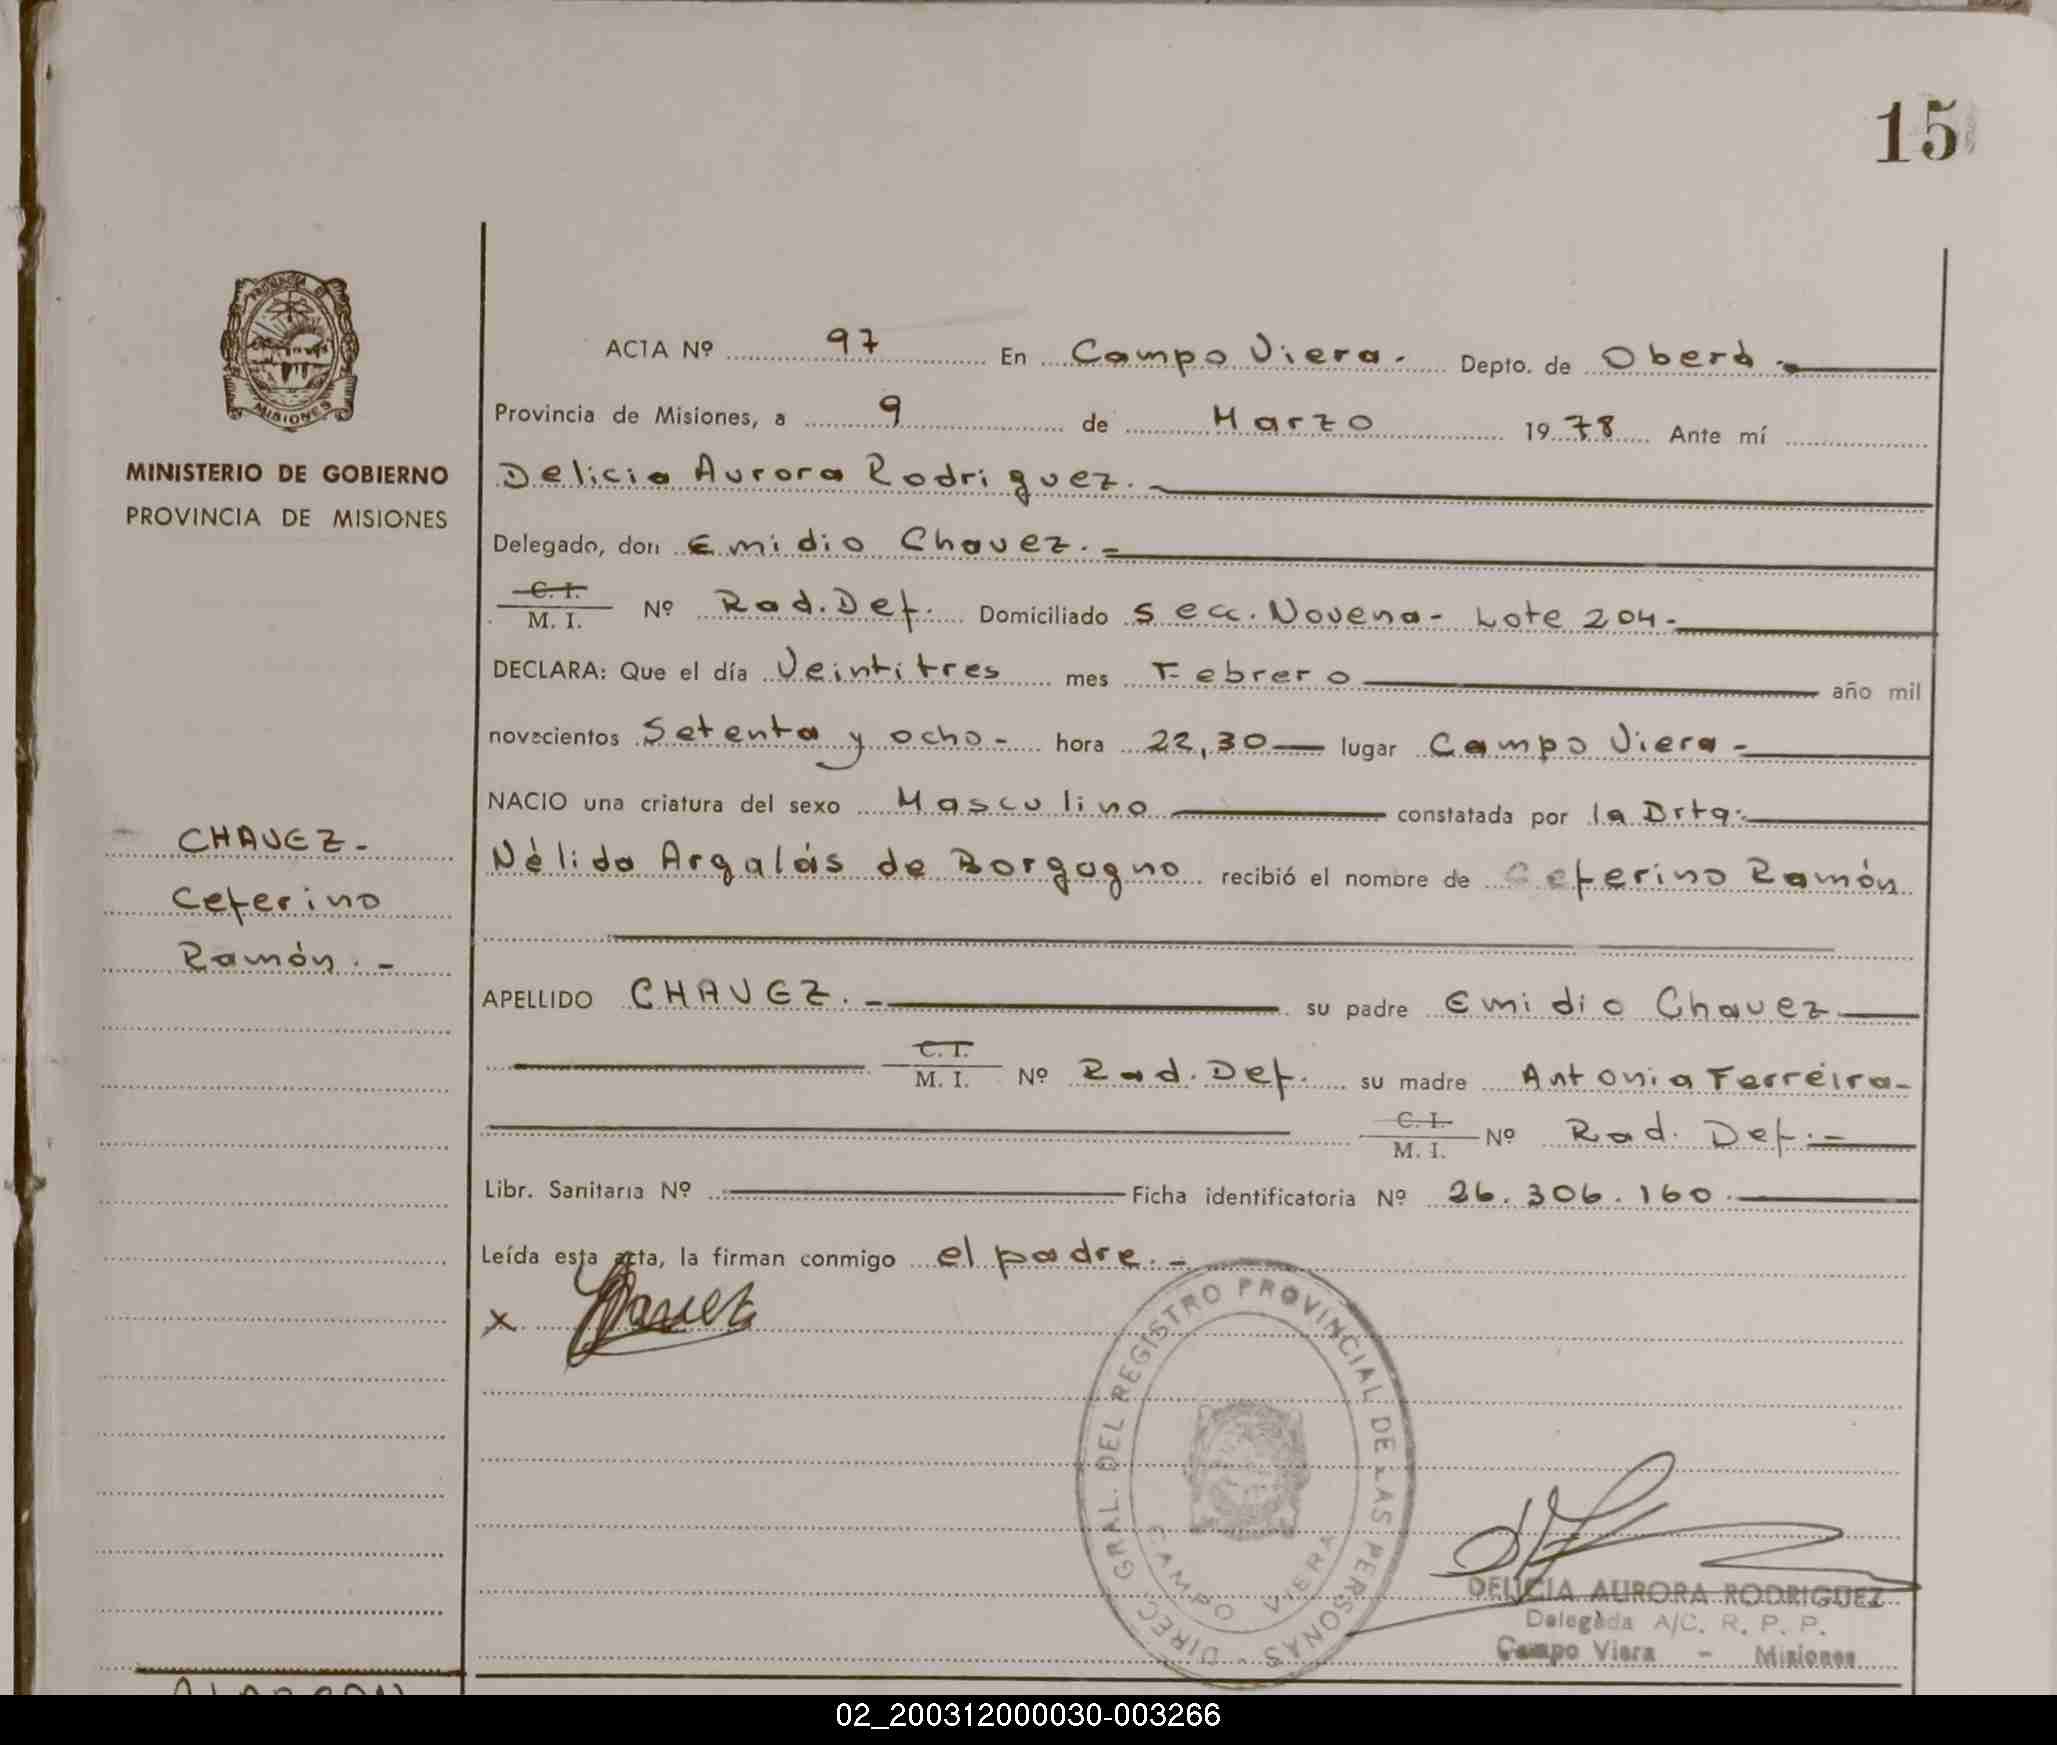 15
PROVINCIA DE
MISIONES
MINISTERIO DE GOBIERNO
PROVINCIA DE MISIONES
CHAVEZ.-
Ceferino
Ramón.-
ACTA Nº 97 En Campo Viera. Depto. de Oberá.-
Provincia de Misiones, a 9 de Marzo 1978 Ante mí
Delicia Aurora Rodriguez.-
Delegado, don Emidio Chavez.-
C. I.
M. I. Nº Rad. Def. Domiciliado Secc. Novena- Lote 204.-
DECLARA: Que el día Veintitres mes Febrero año mil
novecientos Setenta y ocho- hora 22,30 lugar Campo Viera-
NACIO una criatura del sexo Masculino constatada por la Drta.
Nélida Argalás de Borgogno recibió el nombre de Ceferino Ramón
APELLIDO CHAVEZ.- su padre Emidio Chavez
C. I.
M. I. Nº Rad. Def. su madre Antonia Ferreira-
C. I.
M. I. Nº Rad. Def.-
Libr. Sanitaria Nº Ficha identificatoria Nº 26.306.160.
Leída esta acta, la firman conmigo el padre.-
x Chavez
DIREC. GRAL. DEL REGISTRO PROVINCIAL DE LAS PERSONAS
CAMPO VIERA
DELICIA AURORA RODRIGUEZ
Delegada A/C. R. P. P.
Campo Viera - Misiones
ALARCON
02_200312000030-003266